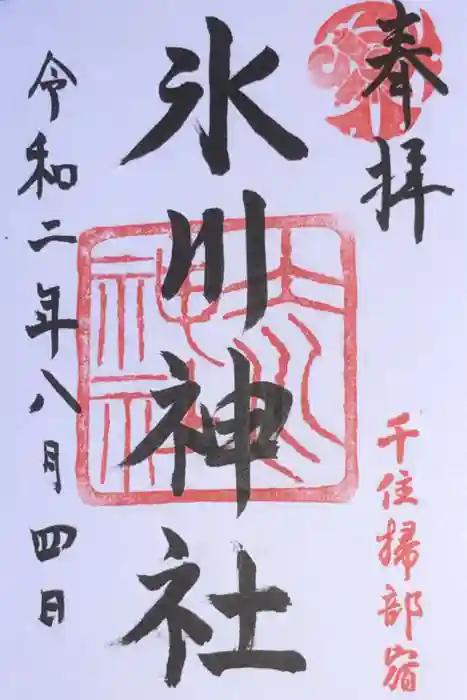 奉拝
千住掃部宿
氷川神社
令和二年八月四日